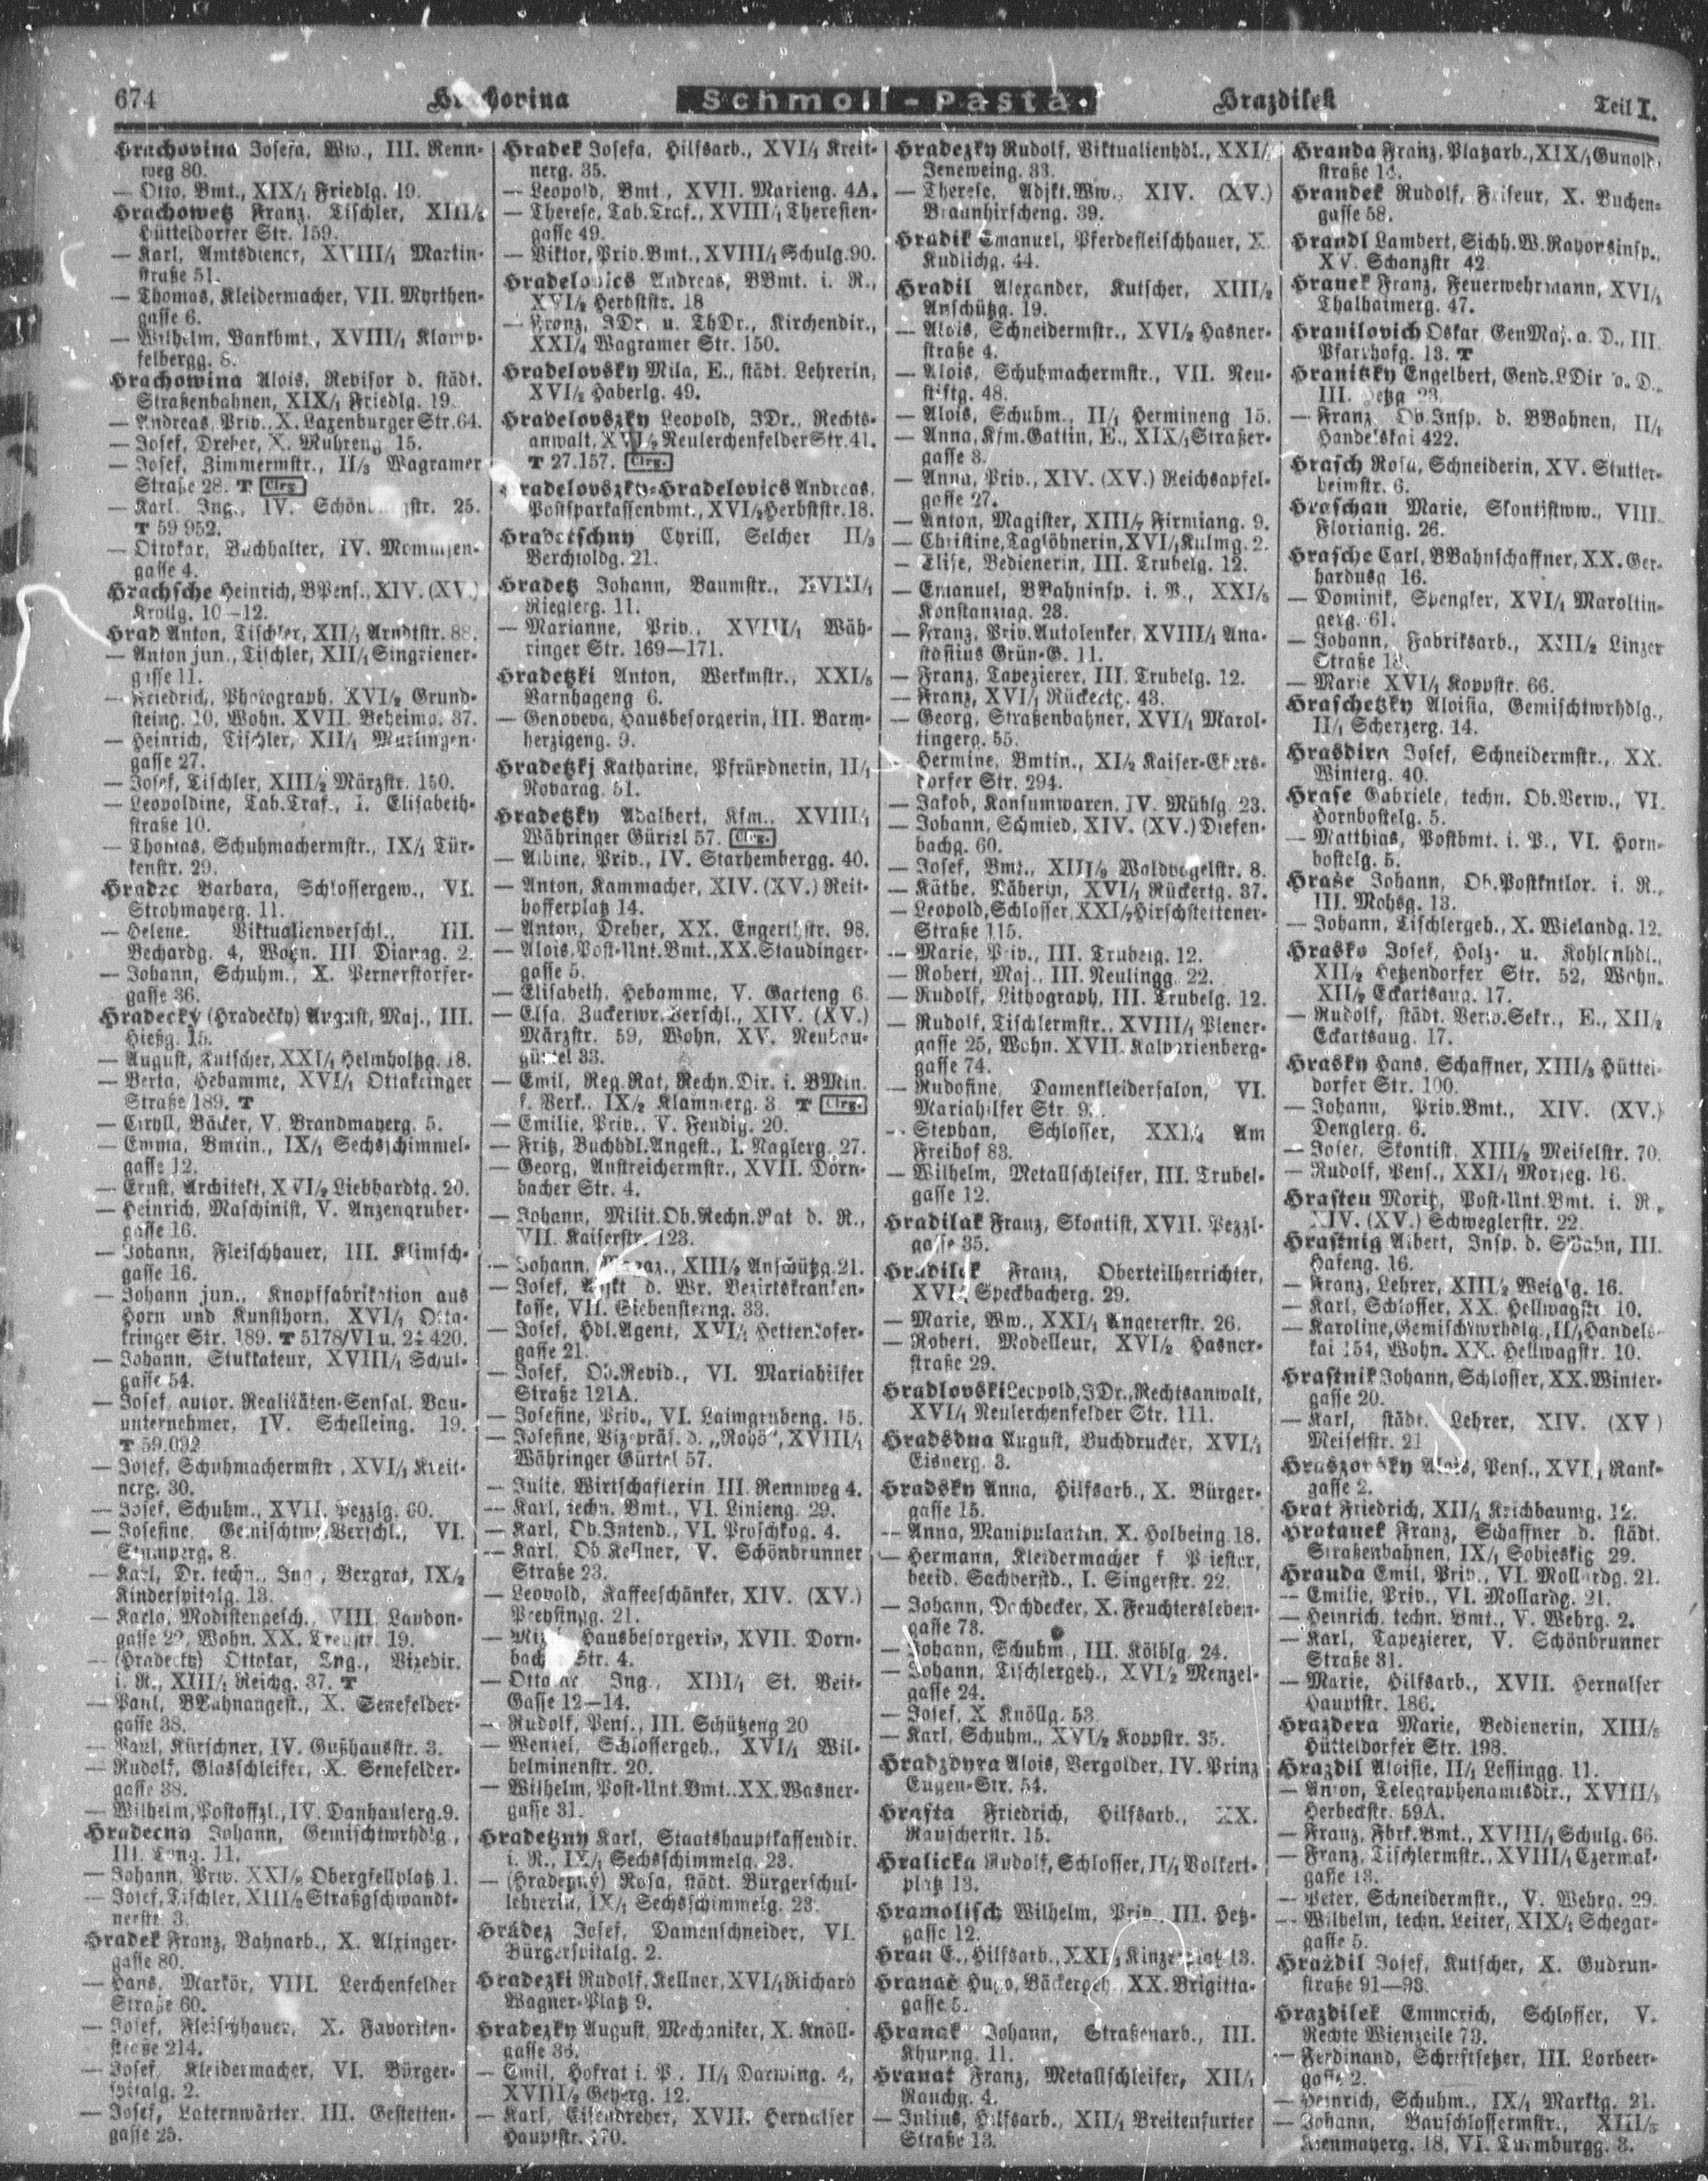 674 Hrachovina Schmoll-Pasta. Hrazdilek Teil I.
Hrachovina Josefa, Ww., III. Renn-
weg 80.
— Otto, Bmt., XIX/1 Friedlg. 19.
Hrachowetz Franz, Tischler, XIII/3
Hütteldorfer Str. 159.
— Karl, Amtsdiener, XVIII/1 Martin-
straße 51.
— Thomas, Kleidermacher, VII. Myrthen-
gasse 6.
— Wilhelm, Bankbmt., XVIII/1 Klamp-
felbergg. 8.
Hrachowina Alois, Revisor d. städt.
Straßenbahnen, XIX/1 Friedlg. 19.
— Andreas, Priv., X. Laxenburger Str. 64.
— Josef, Dreher, X. Muhreng 15.
— Josef, Zimmermstr., II/3 Wagramer
Straße 28. T Clrg.
— Karl, Ing., IV. Schönburgstr. 25.
T 59 952.
— Ottokar, Buchhalter, IV. Mommsen-
gasse 4.
Hrachsche Heinrich, BPens., XIV. (XV.)
Krollg. 10—12.
Hrad Anton, Tischler, XII/1 Arndtstr. 88.
— Anton jun., Tischler, XII/1 Singriener-
gasse 11.
— Friedrich, Photograph, XVI/2 Grund-
steing. 10, Wohn. XVII. Beheimg. 37.
— Heinrich, Tischler, XII/1 Murlingen-
gasse 27.
— Josef, Tischler, XIII/2 Märzstr. 150.
— Leopoldine, Tab.Traf., I. Elisabeth-
straße 10.
— Thomas, Schuhmachermstr., IX/1 Tür-
kenstr. 29.
Hradec Barbara, Schlossergew., VI.
Strohmayerg. 11.
— Helene, Viktualienverschl., III.
Bechardg. 4, Wohn. III. Dianag. 2.
— Johann, Schuhm., X. Pernerstorfer-
gasse 36.
Hradecky (Hradečky) August, Maj., III.
Hießg. 15.
— August, Kutscher, XXI/4 Helmholtzg. 18.
— Berta, Hebamme, XVI/1 Ottakringer
Straße 189. T
— Cyrill, Bäcker, V. Brandmayerg. 5.
— Emma, Bmtin., IX/1 Sechsschimmel-
gasse 12.
— Ernst, Architekt, XVI/2 Liebhardtg. 20.
— Heinrich, Maschinist, V. Anzengruber-
gasse 16.
— Johann, Fleischhauer, III. Klimsch-
gasse 16.
— Johann jun., Knopffabrikation aus
Horn und Kunsthorn, XVI/1 Otta-
kringer Str. 189. T 5178/VI u.
— Johann, Stukkateur, XVIII/1 Schul-
gasse 54.
— Josef, autor. Realitäten-Sensal, Bau-
unternehmer, IV. Schelleing. 19.
T 59.092
— Josef, Schuhmachermstr., XVI/1 Kreit-
nerg. 30.
— Josef, Schuhm., XVII. Pezzlg. 60.
— Josefine, Gemischtw.Verschl., VI.
Stumperg. 8.
— Karl, Dr. techn., Ing., Bergrat, IX/2
Kinderspitalg. 13.
— Karla, Modistengesch., VIII. Laudon-
gasse 29, Wohn. XX. Treustr. 19.
— (Hradecky) Ottokar, Ing., Vizedir.
i. R., XIII/1 Reichg. 37. T
— Paul, BBahnangest., X. Senefelder-
gasse 38.
— Paul, Kürschner, IV. Gußhausstr. 3.
— Rudolf, Glasschleifer, X. Senefelder-
gasse 38.
— Wilhelm, Postoffzl., IV. Danhauserg. 9.
Hradecny Johann, Gemischtwrhdlg.,
III. Tong. 11.
— Johann, Priv. XXI/2 Obergfellplatz 1.
— Josef, Tischler, XIII/2 Straßgschwandt-
nerstr. 3.
Hradek Franz, Bahnarb., X. Alxinger-
gasse 80.
— Hans, Markör, VIII. Lerchenfelder
Straße 60.
— Josef, Fleischhauer, X. Favoriten-
straße 214.
— Josef, Kleidermacher, VI. Bürger-
spitalg. 2.
— Josef, Laternwärter, III. Gestetten-
gasse 25.
Hradek Josefa, Hilfsarb., XVI/1 Kreit-
nerg. 35.
— Leopold, Bmt., XVII. Marieng. 4A.
— Therese, Tab.Traf., XVIII/1 Theresien-
gasse 49.
— Viktor, Priv.Bmt., XVIII/1 Schulg. 90.
Hradelovics Andreas, BBmt. i. R.,
XVI/2 Herbststr. 18
— Franz, JDr. u. ThDr., Kirchendir.,
XXI/4 Wagramer Str. 150.
Hradelovsky Mila, E., städt. Lehrerin,
XVI/2 Haberlg. 49.
Hradelovszky Leopold, JDr., Rechts-
anwalt, XVI/2 Neulerchenfelder Str. 41.
T 27.157. Clrg.
Hradelovszky-Hradelovics Andreas,
Postsparkassenbmt., XVI/2 Herbststr. 18.
Hradetschny Cyrill, Selcher II/3
Berchtoldg. 21.
Hradetz Johann, Baumstr., XVIII/1
Rieglerg. 11.
— Marianne, Priv., XVIII/1 Wäh-
ringer Str. 169—171.
Hradetzki Anton, Werkmstr., XXI/5
Varnhageng 6.
— Genoveva, Hausbesorgerin, III. Barm-
herzigeng. 9.
Hradetzkj Katharine, Pfründnerin, II/1
Novarag. 51.
Hradetzky Adalbert, Kfm., XVIII/1
Währinger Gürtel 57. Clrg.
— Albine, Priv., IV. Starhembergg. 40.
— Anton, Kammacher, XIV. (XV.) Reit-
hofferplatz 14.
— Anton, Dreher, XX. Engerthstr. 98.
— Alois, Post-Unt.Bmt., XX. Staudinger-
gasse 5.
— Elisabeth, Hebamme, V. Garteng 6.
— Elsa, Zuckerwr.Verschl., XIV. (XV.)
Märzstr. 59, Wohn. XV. Neubau-
gürtel 33.
— Emil, Reg.Rat, Rechn.Dir. i. BMin.
f. Verk., IX/2 Klammerg. 3 T Clrg.
— Emilie, Priv., V. Fendig. 20.
— Fritz, Buchhdl.Angest., I. Naglerg. 27.
— Georg, Anstreichermstr., XVII. Dorn-
bacher Str. 4.
— Johann, Milit.Ob.Rechn.Rat d. R.,
VII. Kaiserstr. 123.
— Johann, XIII/2 Anschützg. 21.
— Josef, d. Wr. Bezirkskranken-
kasse, VII. Siebensterng. 33.
— Josef, Hdl.Agent, XVI/1 Hettenkofer-
gasse 21.
— Josef, Ob.Revid., VI. Mariahilfer
Straße 121A.
— Josefine, Priv., VI. Laimgrubeng. 15.
— Josefine, Vizepräs. d. „Rohö“, XVIII/1
Währinger Gürtel 57.
— Julie, Wirtschafterin III. Rennweg 4.
— Karl, techn. Bmt., VI. Linieng. 29.
— Karl, Ob.Intend., VI. Proschkog. 4.
— Karl, Ob.Kellner, V. Schönbrunner
Straße 23.
— Leopold, Kaffeeschänker, XIV. (XV.)
Preysingg. 21.
— Hausbesorgerin, XVII. Dorn-
bacher Str. 4.
— Ottokar Ing., XIII/1 St. Veit-
Gasse 12—14.
— Rudolf, Pens., III. Schützeng 20
— Wenzel, Schlossergeh., XVI/1 Wil-
helminenstr. 20.
— Wilhelm, Post-Unt.Bmt., XX. Wasner-
gasse 31.
Hradetzny Karl, Staatshauptkassendir.
i. R., IX/1 Sechsschimmelg. 23.
— (Hradezný) Rosa, städt. Bürgerschul-
lehrerin, IX/1 Sechsschimmelg. 23.
Hrádez Josef, Damenschneider, VI.
Bürgerspitalg. 2.
Hradezki Rudolf, Kellner, XVI/1 Richard
Wagner-Platz 9.
Hradezky August, Mechaniker, X. Knöll-
gasse 36.
— Emil, Hofrat i. P., II/1 Darwing. 4,
XVIII/2 Geyerg. 12.
— Karl, Eisendreher, XVII. Hernalser
Hauptstr. 170.
Hradezky Rudolf, Viktualienhdl., XXI/
Jeneweing. 33.
— Therese, Adjkt.Ww., XIV. (XV.)
Braunhirscheng. 39.
Hradik Emanuel, Pferdefleischhauer, X.
Kudlichg. 44.
Hradil Alexander, Kutscher, XIII/2
Anschützg. 19.
— Alois, Schneidermstr., XVI/2 Hasner-
straße 4.
— Alois, Schuhmachermstr., VII. Neu-
stiftg. 48.
— Alois, Schuhm., II/1 Hermineng 15.
— Anna, Kfm.Gattin, E., XIX/1 Straßer-
gasse 3.
— Anna, Priv., XIV. (XV.) Reichsapfel-
gasse 27.
— Anton, Magister, XIII/7 Firmiang. 9.
— Christine, Taglöhnerin, XVI/1 Kulmg. 2.
— Elise, Bedienerin, III. Trubelg. 12.
— Emanuel, BBahninsp. i. P., XXI/5
Konstanziag. 23.
— Franz, Priv.Autolenker, XVIII/1 Ana-
stasius Grün-G. 11.
— Franz, Tapezierer, III. Trubelg. 12.
— Franz, XVI/1 Rückertg. 43.
— Georg, Straßenbahner, XVI/1 Marol-
tingerg. 55.
— Hermine, Bmtin., XI/2 Kaiser-Ebers-
dorfer Str. 294.
— Jakob, Konsumwaren, IV. Mühlg. 23.
— Johann, Schmied, XIV. (XV.) Diefen-
bachg. 60.
— Josef, Bmt., XIII/2 Waldvogelstr. 8.
— Käthe, Näherin, XVI/1 Rückertg. 37.
— Leopold, Schlosser, XXI/7 Hirschstettener-
Straße 115.
— Marie, Priv., III. Trubelg. 12.
— Robert, Maj., III. Neulingg. 22.
— Rudolf, Lithograph, III. Trubelg. 12.
— Rudolf, Tischlermstr., XVIII/1 Plener-
gasse 25, Wohn. XVII. Kalvarienberg-
gasse 74.
— Rudofine, Damenkleidersalon, VI.
Mariahilfer Str.
— Stephan, Schlosser, XXI/4 Am
Freihof 83.
— Wilhelm, Metallschleifer, III. Trubel-
gasse 12.
Hradilak Franz, Skontist, XVII. Pezzl-
gasse 35.
Hradilek Franz, Oberteilherrichter,
Speckbacherg. 29.
— Marie, Ww., XXI/1 Angererstr. 26.
— Robert, Modelleur, XVI/2 Hasner-
straße 29.
Hradlovski Leopold, JDr., Rechtsanwalt,
XVI/1 Neulerchenfelder Str. 111.
Hradsdna August, Buchdrucker, XVI/1
Eisnerg. 3.
Hradsky Anna, Hilfsarb., X. Bürger-
gasse 15.
— Anna, Manipulantin, X. Holbeing. 18.
— Hermann, Kleidermacher f. Priester,
beeid. Sachverstd., I. Singerstr. 22.
— Johann, Dachdecker, X. Feuchtersleben-
gasse 73.
— Johann, Schuhm., III. Kölblg. 24.
— Johann, Tischlergeh., XVI/2 Menzel-
gasse 24.
— Josef, X Knöllg. 53.
— Karl, Schuhm., XVI/2 Koppstr. 35.
Hradzdyra Alois, Vergolder, IV. Prinz
Eugen-Str. 54.
Hrafta Friedrich, Hilfsarb., XX.
Rauscherstr. 15.
Hralicka Rudolf, Schlosser, II/1 Volkert-
platz 13.
Hramolisch Wilhelm, Priv. III. Hetz-
gasse 12.
Hran E., Hilfsarb., XXI/1 Kinzerplatz 13.
Hranač Hugo, Bäckergeh., XX. Brigitta-
gasse 5.
Hranak Johann, Straßenarb., III.
Khunng. 11.
Hranat Franz, Metallschleifer, XII/1
Rauchg. 4.
— Julius, Hilfsarb., XII/1 Breitenfurter
Straße 13.
Hranda Franz, Platzarb., XIX/1 Gunold-
straße
Hrandek Rudolf, Friseur, X. Buchen-
gasse 58.
Hrandl Lambert, Sichh.W.Rayonsinsp.,
XV. Schanzstr 42.
Hranek Franz, Feuerwehrmann, XVI/1
Thalhaimerg. 47.
Hranilovich Oskar GenMaj. a. D., III.
Pfarrhofg. 13. T
Hranitzky Engelbert, Gend.LDir a. D.,
III. Hetzg 23.
— Franz, Ob.Insp. d. BBahnen, II/1
Handelskai 422.
Hrasch Rosa, Schneiderin, XV. Stutter-
heimstr. 6.
Hraschan Marie, Skontistww., VIII.
Florianig. 26.
Hrasche Carl, BBahnschaffner, XX. Ger-
hardusg 16.
— Dominik, Spengler, XVI/1 Maroltin-
gerg. 61.
— Johann, Fabriksarb., XIII/2 Linzer
Straße
— Marie XVI/1 Koppstr. 66.
Hraschetzky Aloisia, Gemischtwrhdlg.,
II/1 Scherzerg. 14.
Hrasdira Josef, Schneidermstr., XX.
Winterg. 40.
Hrase Gabriele, techn. Ob.Verw., VI.
Hornbostelg. 5.
— Matthias, Postbmt. i. P., VI. Horn-
bostelg. 5.
Hraše Johann, Ob.Postkntlor. i. R.,
III. Mohsg. 13.
— Johann, Tischlergeh., X. Wielandg. 12.
Hrasko Josef, Holz- u. Kohlenhdl.,
XII/2 Hetzendorfer Str. 52, Wohn.
XII/2 Eckartsaug. 17.
— Rudolf, städt. Verw.Sekr., E., XII/2
Eckartsaug. 17.
Hrasky Hans, Schaffner, XIII/3 Hüttel-
dorfer Str. 100.
— Johann, Priv.Bmt., XIV. (XV.)
Denglerg. 6.
— Josef, Skontist, XIII/2 Meiselstr. 70.
— Rudolf, Pens., XXI/1 Morseg. 16.
Hrasteu Moritz, Post-Unt.Bmt. i. R.,
XIV. (XV.) Schweglerstr. 22.
Hrastnig Albert, Insp. d. SBahn, III.
Hafeng. 16.
— Franz, Lehrer, XIII/2 Weiglg. 16.
— Karl, Schlosser, XX. Hellwagstr. 10.
— Karoline, Gemischtwrhdlg., II/1 Handels-
kai 154, Wohn. XX. Hellwagstr. 10.
Hrastnik Johann, Schlosser, XX. Winter-
gasse 20.
— Karl, städt. Lehrer, XIV. (XV)
Meiselstr. 21
Hraszovsky Alois, Pens., XVI/1 Rank-
gasse 2.
Hrat Friedrich, XII/1 Krichbaumg. 12.
Hratanek Franz, Schaffner d. städt.
Straßenbahnen, IX/1 Sobieskig. 29.
Hrauda Emil, Priv., VI. Mollardg. 21.
— Emilie, Priv., VI. Mollardg. 21.
— Heinrich, techn. Bmt., V. Wehrg. 2.
— Karl, Tapezierer, V. Schönbrunner
Straße 31.
— Marie, Hilfsarb., XVII. Hernalser
Hauptstr. 186.
Hrazdera Marie, Bedienerin, XIII/3
Hütteldorfer Str. 198.
Hrazdil Aloisie, II/1 Lessingg. 11.
— Anton, Telegraphenamtsdir., XVIII/1
Herbeckstr. 59A.
— Franz, Fbrk.Bmt., XVIII/1 Schulg. 66.
— Franz, Tischlermstr., XVIII/1 Czermak-
gasse 13.
— Peter, Schneidermstr., V. Wehrg. 29.
— Wilhelm, techn. Leiter, XIX/1 Schegar-
gasse 5.
Hraždil Josef, Kutscher, X. Gudrun-
straße 91—93.
Hrazdilek Emmerich, Schlosser, V.
Rechte Wienzeile 73.
— Ferdinand, Schriftsetzer, III. Lorbeer-
gasse 2.
— Heinrich, Schuhm., IX/1 Marktg. 21.
— Johann, Bauschlossermstr., XIII/5
Kienmayerg. 18, VI. Turmburgg. 3.